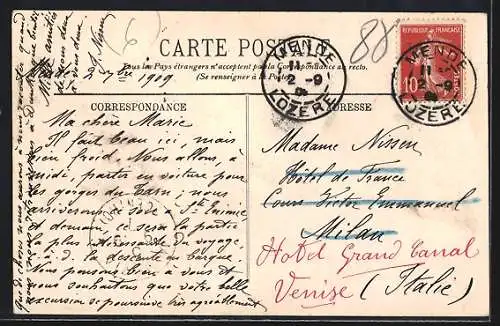 CARTE POSTALE
Tous les Pays étrangers n'acceptent pas la Correspondance au recto.
(Se renseigner à la Poste)
Mende 2 7bre 1909
CORRESPONDANCE
ADRESSE
Ma chère Marie
Il fait beau ici, mais
bien froid. Nous allons, à
midi, partir en voiture pour
les gorges du Tarn; nous
arriverons ce soir à Ste Enimie
et demain, ce sera la partie
la plus intéressante du voyage,
c. à. d. la descente en barque.
Nous pensons bien à vous et
nous souhaitons que votre belle
excursion se poursuive très agréablement
Madame Nissen
Hôtel de France
Cours Victor Emmanuel
Milan
Hotel Grand Canal
Venise (Italie)
MENDE
2-9
LOZERE
REPUBLIQUE FRANÇAISE
10
MENDE
11
2-9
LOZERE
(6)
88